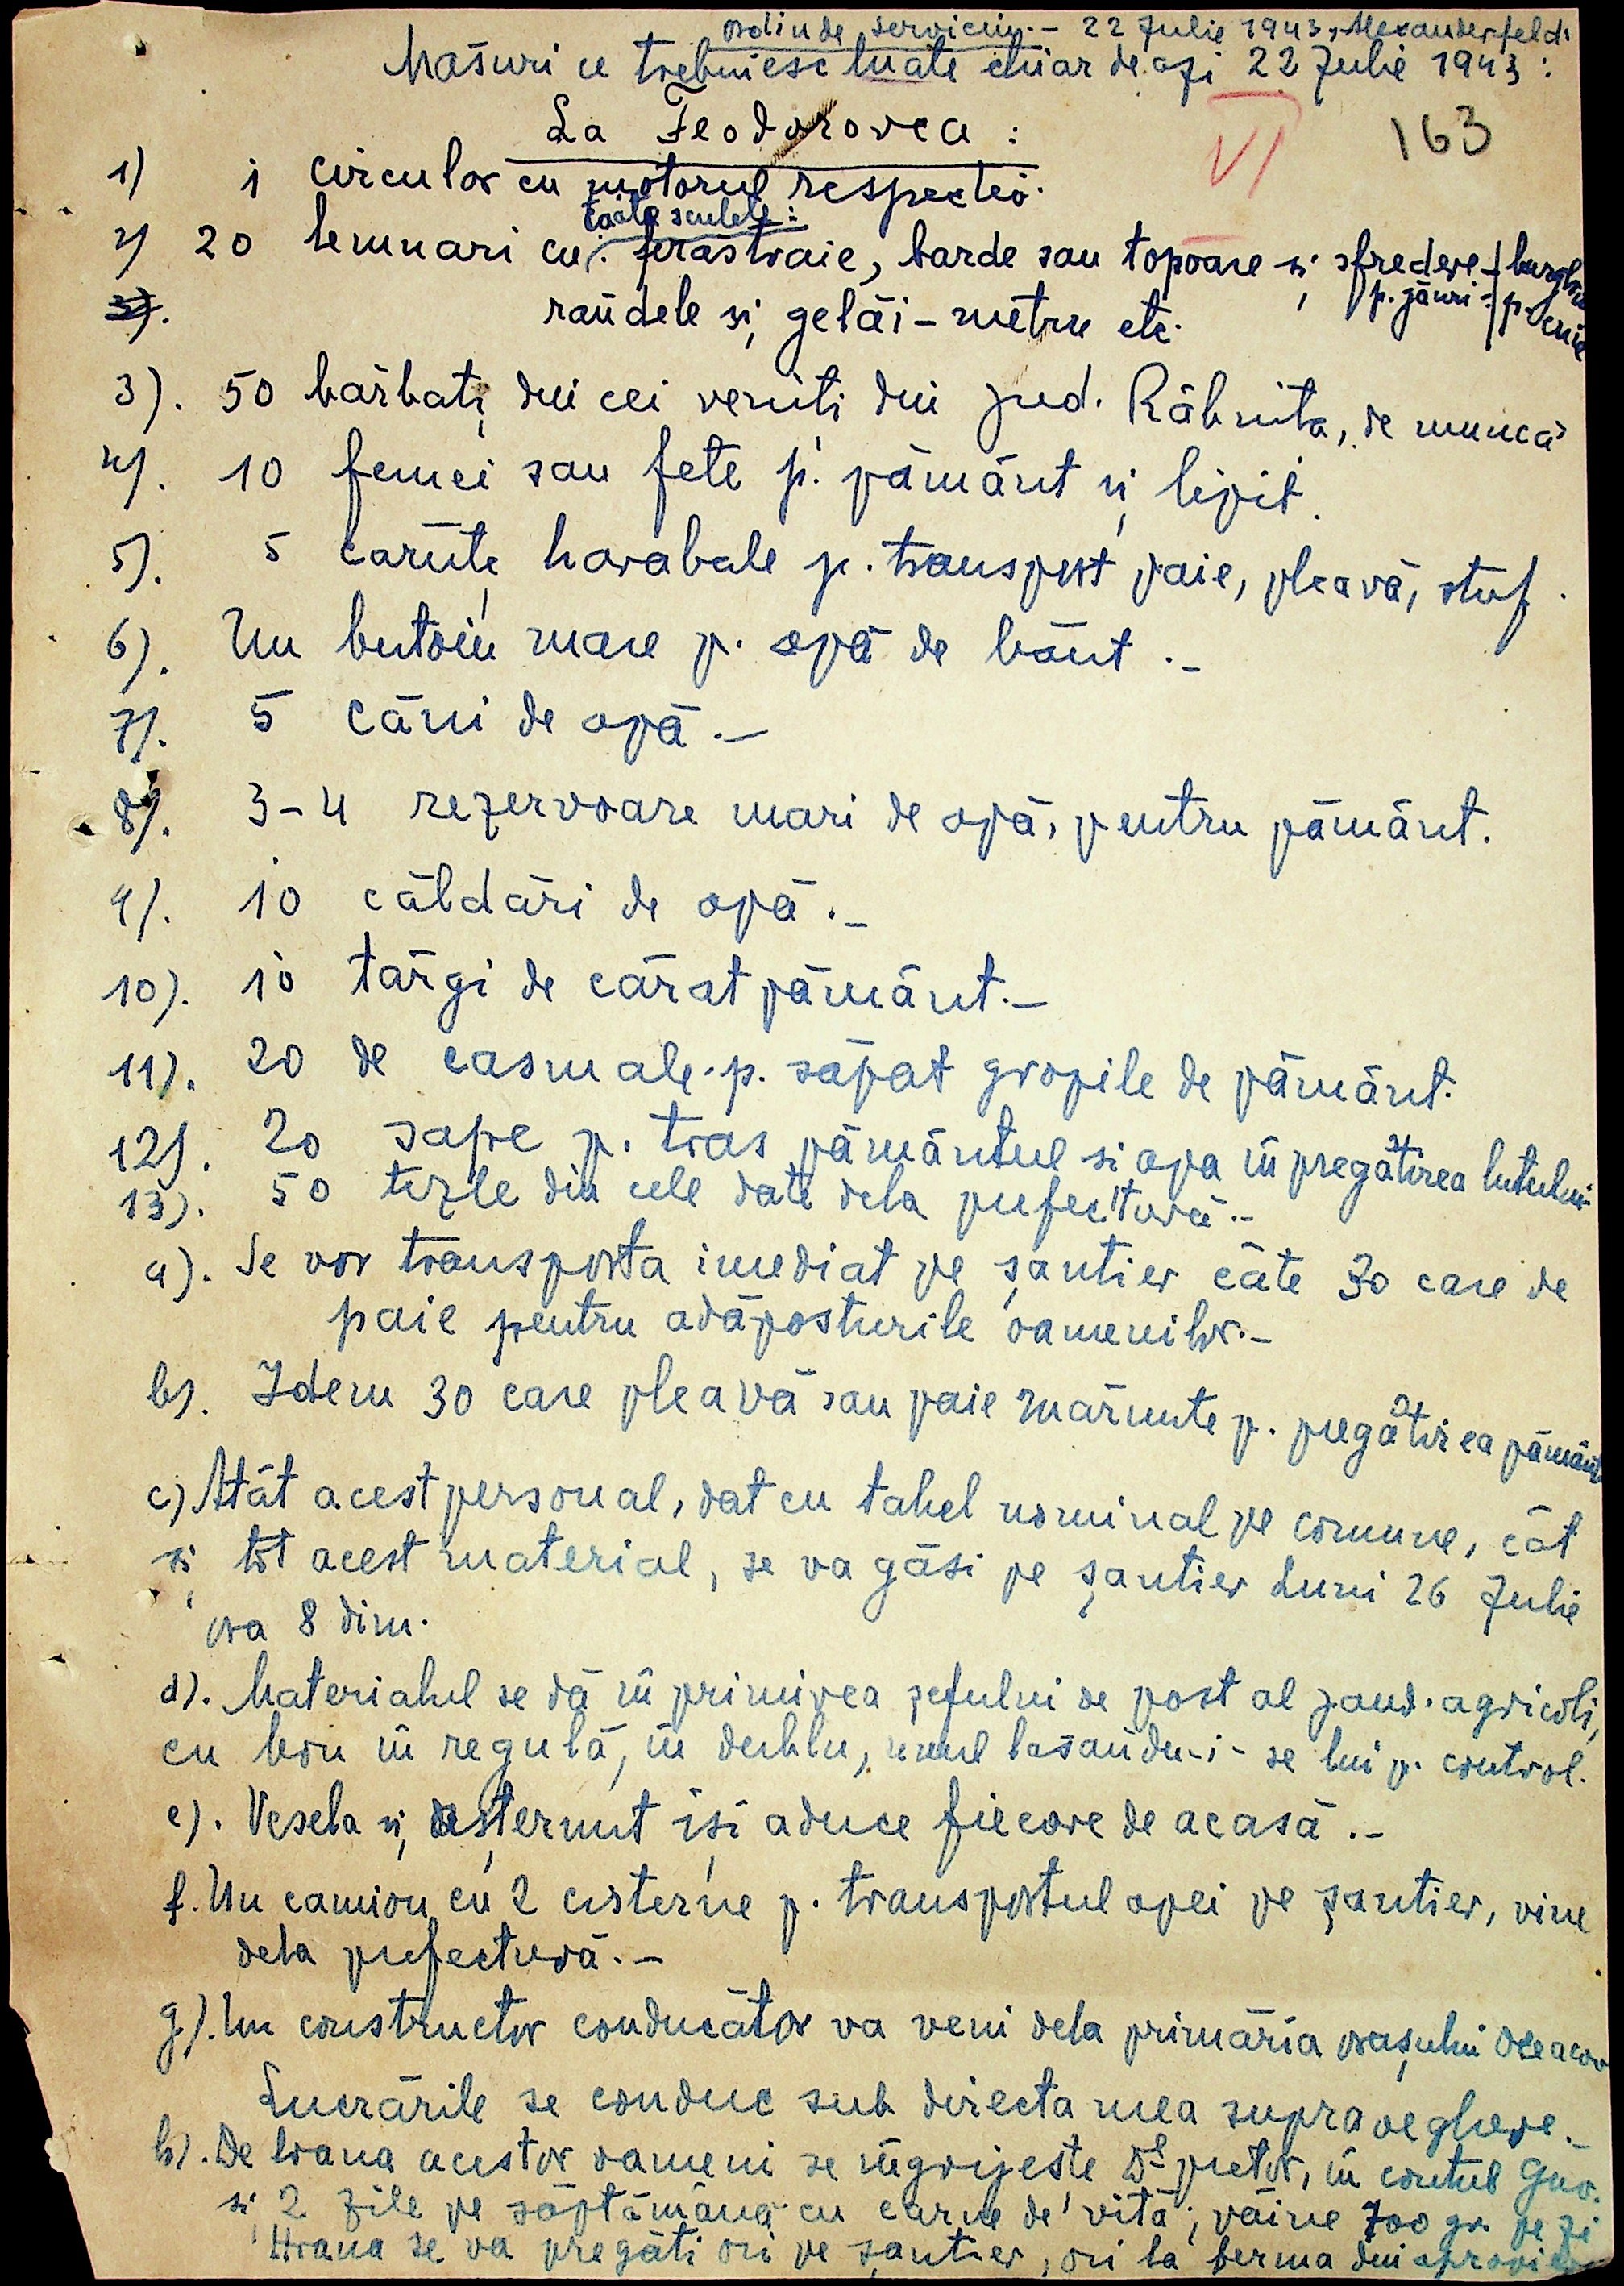 ordin de serviciu.- 22 Julie 1943, Alexanderfeld:
Masuri ce trebuiesc luate chiar de azi 22 Julie 1943:
La Feodorovca:
VI
163
1) 1 circular cu motorul respectiv.
toate sculele:
2) 20 lemnari cu: ferastraie, barde sau topoare și sfredere
p. găuri
3). randele și gelăi-metru etc.
3). 50 barbați din cei veniti din jud. Râbnita, de muncă
4). 10 femei sau fete p. pământ și lipit.
5). 5 carute, harabale p. transport paie, pleavă, stuf.
6). Un butoiu mare p. apă de băut.-
7). 5 căni de apă.-
8). 3-4 rezervoare mari de apă, pentru pământ.
9). 10 căldări de apă.-
10). 10 tărgi de cărat pământ.-
11). 20 de casmale p. săpat gropile de pământ.
12). 20 sape p. tras pământul si apa în pregătirea lutului
13). 50 tezle din cele date dela prefectură.-
a). Se vor transporta imediat pe șantier câte 30 care de
paie pentru adăposturile oamenilor.-
b). Idem 30 care pleavă sau paie mărunte p. pregătirea pământ
c) Atât acest personal, dat cu tabel nominal pe comune, cât
și tot acest material, se va găsi pe șantier Luni 26 Julie
ora 8 dim.
d). Materialul se dă în primirea șefului de post al jand. agricoli,
cu bon în regulă, în dublu, unul lasandu-i-se lui p. control.
e). Vesela și așternut iși aduce fiecare de acasă.-
f. Un camion cu 2 cisterne p. transportul apei pe șantier, vine
dela prefectură.-
g). Un constructor conducător va veni dela primăria orașului Oceacov
Lucrările se conduc sub directa mea supraveghere.-
h). De hrana acestor oameni se îngrijește Dl pretor, în contul Guv.
si 2 zile pe săptămână cu carne de vită; pâine 700 gr. pe zi
Hrana se va pregăti ori pe șantier, ori la ferma din